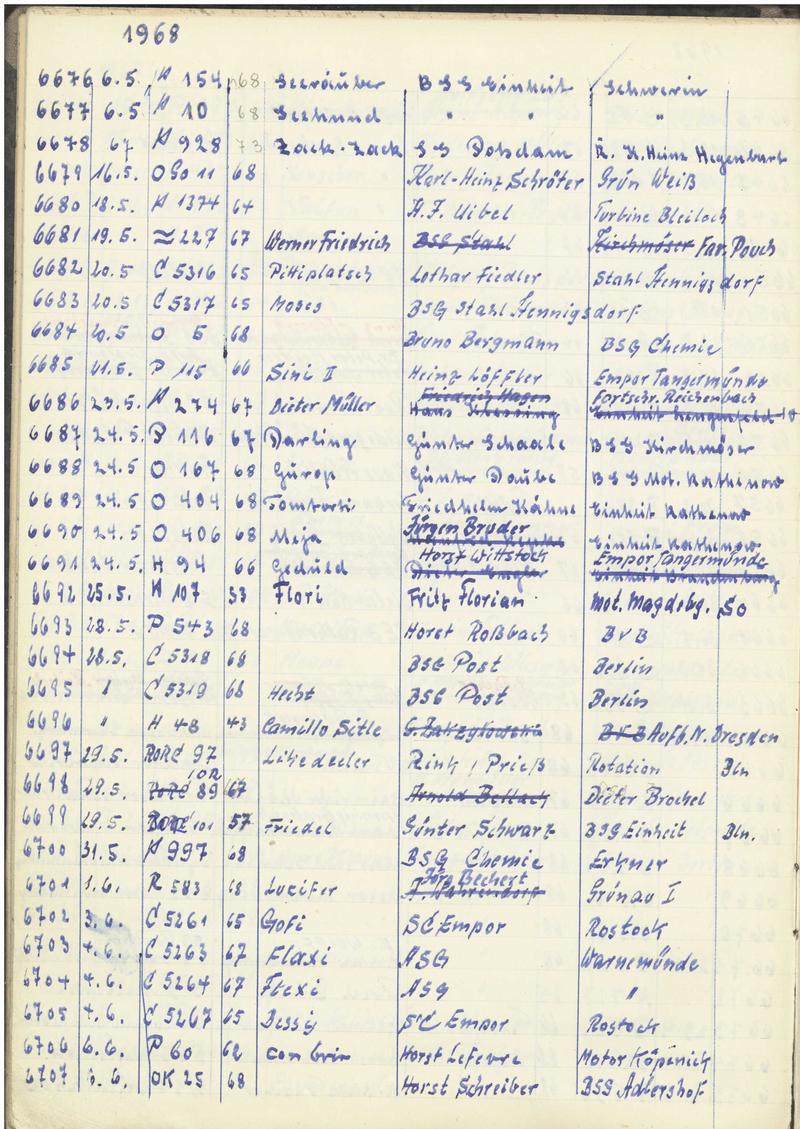 1968
6676 6.5. A 154 68 Seeräuber BSG Einheit Schwerin
6677 6.5. A 10 68 Seehund " " "
6678 6.5. A 928 73 Zack-Zack SG Potsdam K. Heinz Hegenbart
6679 16.5. OGo 11 68 Karl-Heinz Schröter Grün Weiß
6680 18.5. A 1374 64 A.F. Uibel Turbine Bleiloch
6681 19.5. ≈ 227 67 Werner Friedrich BSG Stahl Kirchmöser Far. Pouch
6682 20.5 C 5316 65 Pittiplatsch Lothar Fiedler Stahl Hennigsdorf
6683 20.5 C 5317 65 Moses BSG Stahl Hennigsdorf
6684 20.5 O 5 68 Bruno Bergmann BSG Chemie
6685 21.5. P 115 66 Sini II Heinz Löffler Empor Tangermünde
Friedrich Hagen Fortschr. Reichenbach
6686 23.5. A 274 67 Dieter Müller Hans Einheit
6687 24.5. P 116 67 Darling Günter Schaale BSG Kirchmöser
6688 24.5 O 167 68 Günter Daube BSG Mot. Rathenow
6689 24.5 O 404 68 Friedhelm Kühne Einheit Rathenow
Jürgen Bruder
6690 24.5 O 406 68 Meja Einheit Rathenow
Horst Wittstock Empor Tangermünde
6691 24.5. H 94 66 Geduld Einheit Brandenburg
6692 25.5. H 107 53 Flori Fritz Florian Mot. Magdebg. SO
6693 28.5. P 543 68 Horst Roßbach BVB
6694 28.5. C 5318 68 BSG Post Berlin
6695 " C 5319 68 Hecht BSG Post Berlin
6696 " H 48 43 Camillo Sitte BVB Aufb. N. Dresden
6697 29.5. RORC 97 Rink, Prieß Rotation Bln
6698 29.5. IOR 89 67 Arnold Dieter Brochel
6699 29.5. 101 57 Friedel Günter Schwarz BSG Einheit Bln.
6700 31.5. A 997 68 BSG Chemie Erkner
Jörg Bechert
6701 1.6. R 583 68 Luzifer Grünau I
6702 3.6. C 5261 65 Gofi SC Empor Rostock
6703 4.6. C 5263 67 Flaxi ASG Warnemünde
6704 4.6. C 5264 67 Flexi ASG "
6705 4.6. C 5267 65 Dessy SC Empor Rostock
6706 6.6. P 60 62 con brio Horst Lefevre Motor Köpenick
6707 6.6. OK 25 68 Horst Schreiber BSG Adlershof